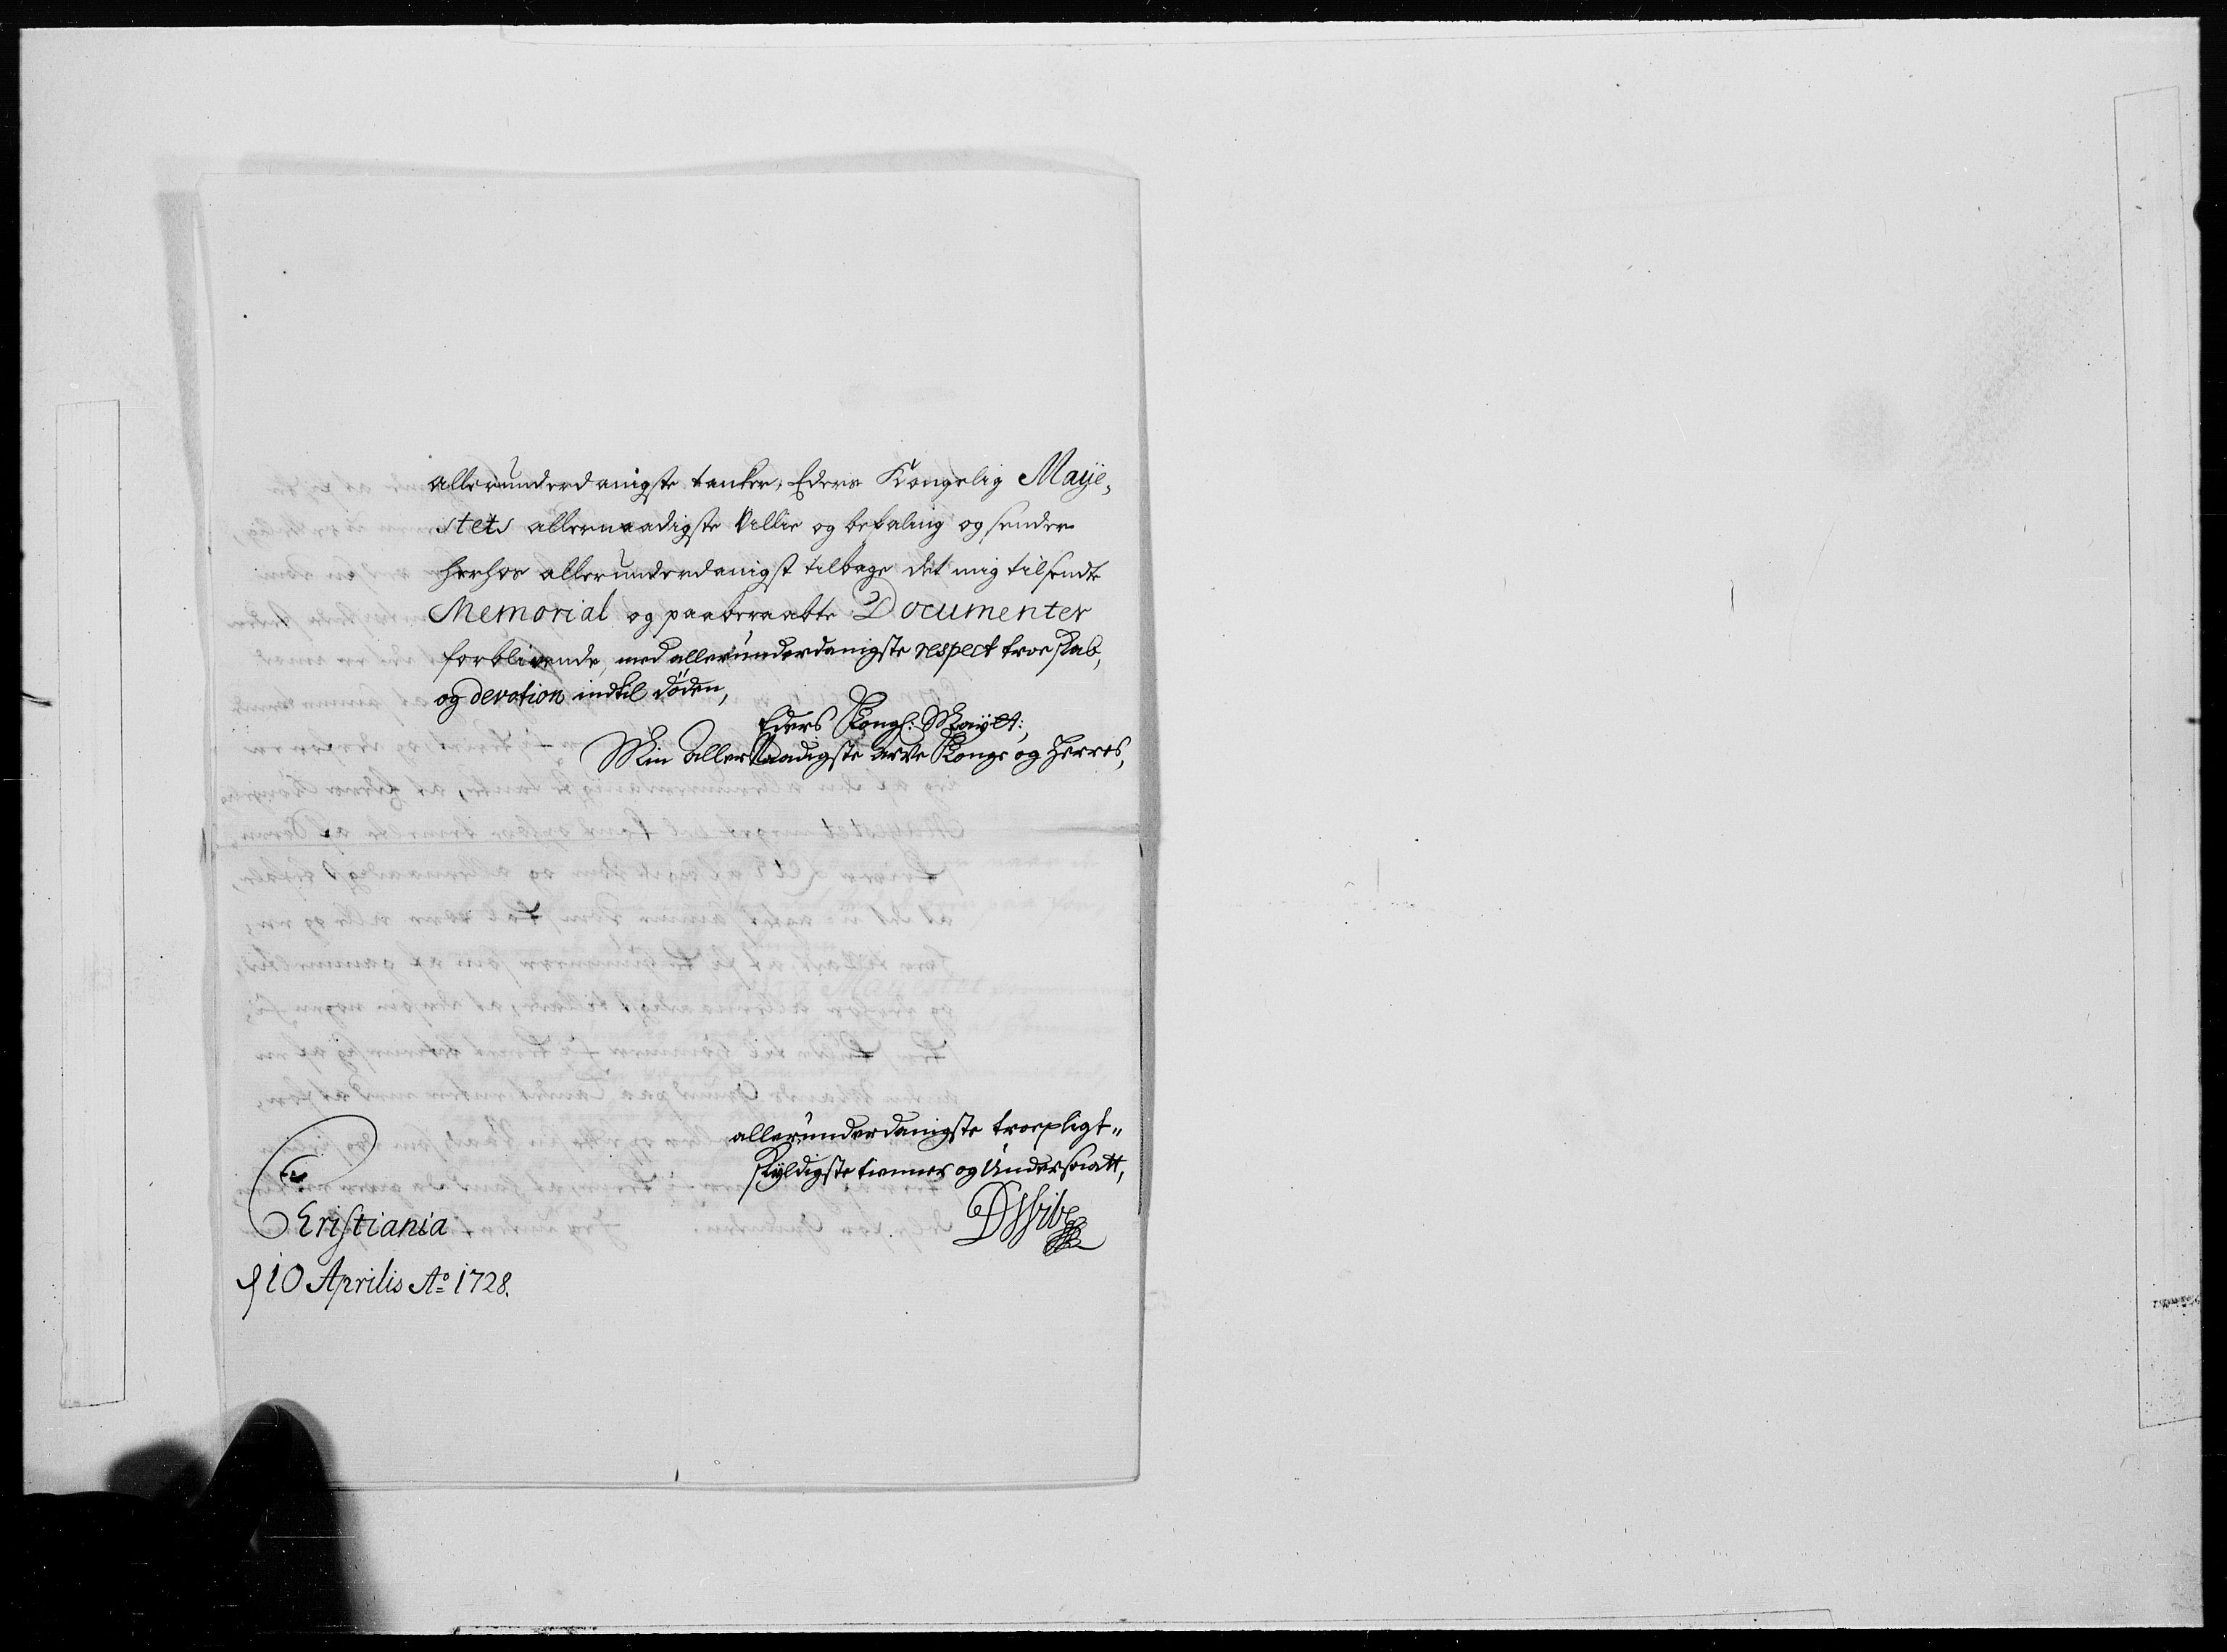 allerunderdanigste tanker, Eders Kongelig Maÿe,
stets allernaadigste Villie og befaling og sender
herhos allerunderdanigst tilbage det mig tilsendte
Memorial og paaberaabte Documenter
forblivende, med allerunderdanigste respect troeskab,
og devotion indtil døden,
Eders Kongl: Maÿet:,
Min AllerNaadigste Arve Konge og Herres,
allerunderdanigste troepligt„
skÿldigste tienner og Undersaatt,
DVibe
Cristiania
d 10 Aprilis Aº 1728.